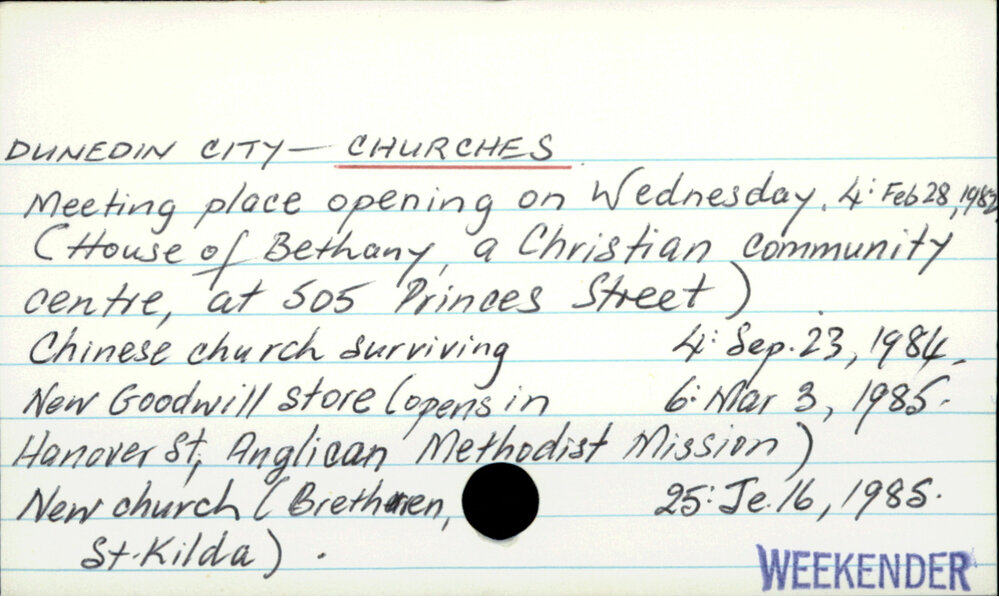 DUNEDIN CITY — CHURCHES
Meeting place opening on Wednesday. 4: Feb 28, 1982
(House of Bethany, a Christian community
centre, at 505 Princes Street)
Chinese church surviving 4: Sep. 23, 1984.
New Goodwill store (opens in 6: Mar 3, 1985.
Hanover St, Anglican Methodist Mission)
New church (Brethren, 25: Je. 16, 1985.
St. Kilda) .
WEEKENDER